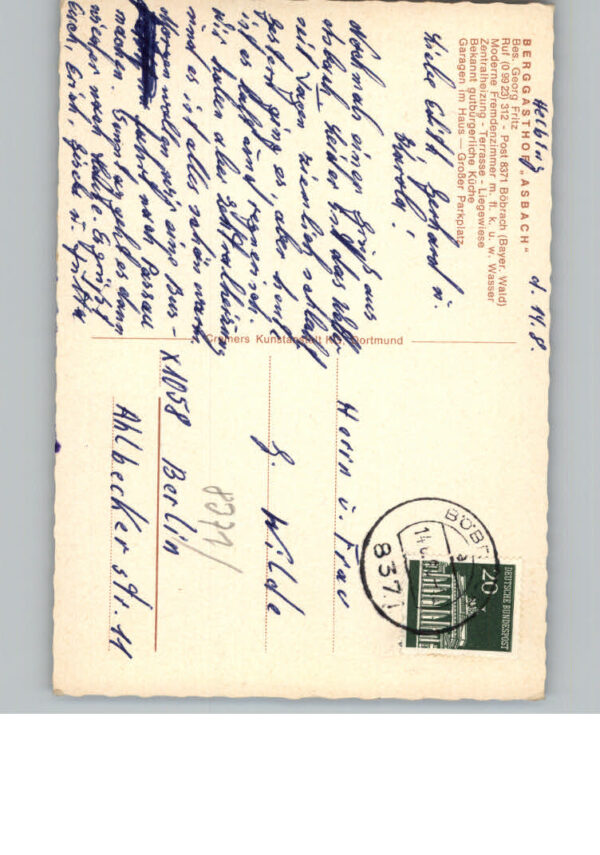 BERGGASTHOF „ASBACH“
Bes. Georg Fritz
Ruf (0 99 23) 312 - Post 8371 Böbrach (Bayer. Wald)
Moderne Fremdenzimmer m. fl. k. u. w. Wasser
Zentralheizung - Terrasse - Liegewiese
Bekannt gutbürgerliche Küche
Garagen im Haus — Großer Parkplatz
d. 14.8.
Liebe Edith Gerhard u.
Noch mal einen Gruß aus
Asbach. Leider ist das Wetter
mit Regen ziemlich
Gestern ging es, aber heute
ist es kalt und regnerisch.
Wir haben aber Zentralheizung
und es ist alles schön warm.
Morgen wollen wir eine Bus-
fahrt nach Passau
machen. Sonntag geht es dann
wieder nach Hause. Es grüßt
Euch, Erich, u. Jutta
Cramers Kunstanstalt KG, Dortmund
Herrn u. Frau
G. Wilde
X 1058 Berlin
Ahlbecker str. 11
8371/
BÖB
14.
8371
20
DEUTSCHE BUNDESPOST